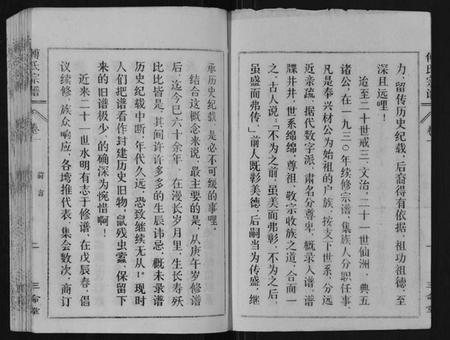 力，留传历史纪载，后裔得有依据，祖功祖德，至
深且远哩！
迨至二十世戒三、文治，二十一世仙洲、典五
诸公，在一九二〇年续修宗谱，集族人分职任事，
凡是奉兴材公为始祖的户族，按支下世系，分远
近亲疏，据代数字派，肃名分尊卑，概录入谱，谱
牒井井，世系绵绵，尊祖敬宗收族之道，合而一
之，古人说："不为之前，虽美而弗彰，不为之后，
虽盛而弗传。"前人既彰美德，后嗣当为传盛，继
承历史纪载，是必不可缓的事理。
结合这概念来说，最主要的是，从庚午岁修谱
后，迄今已六十余年，在漫长岁月里，生长寿殁
比比皆是，其间许许多多的生辰讳忌，概未录谱
历史纪载中断，年代久远，恐致继续无从！现时
人们把谱看作封建历史旧物，鼠残虫蠹，保留下
来的旧谱极少，的确深为惋惜啊！
近来二十二世水明有志于修谱，在戊辰春，倡
议续修，族众响应，各塆推代表，集会数次，商订
傅氏宗谱
卷
前言
二